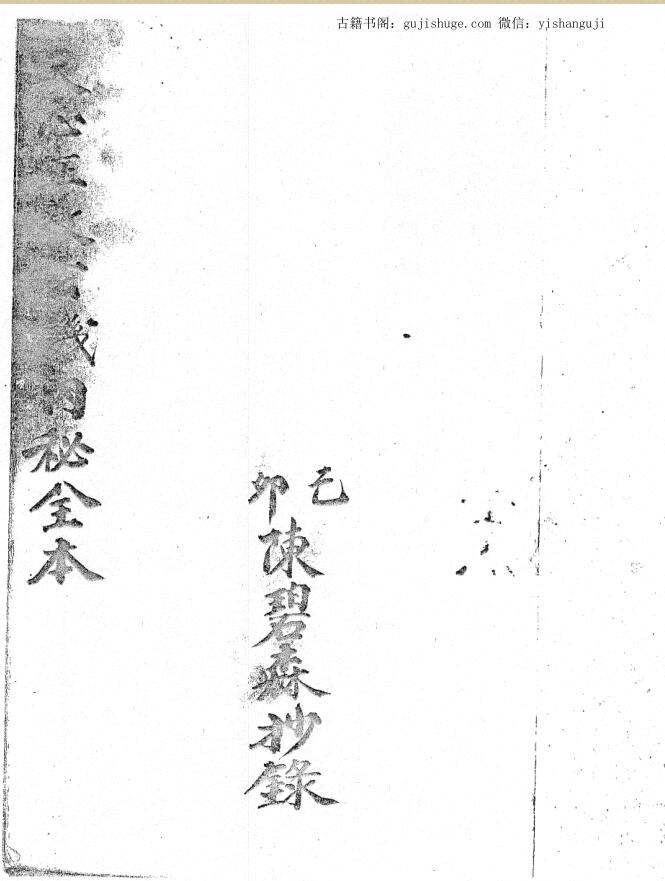 古籍书阁：gujishuge.com 微信：yishanguji
己卯
陳碧森抄錄
心正內秘全本